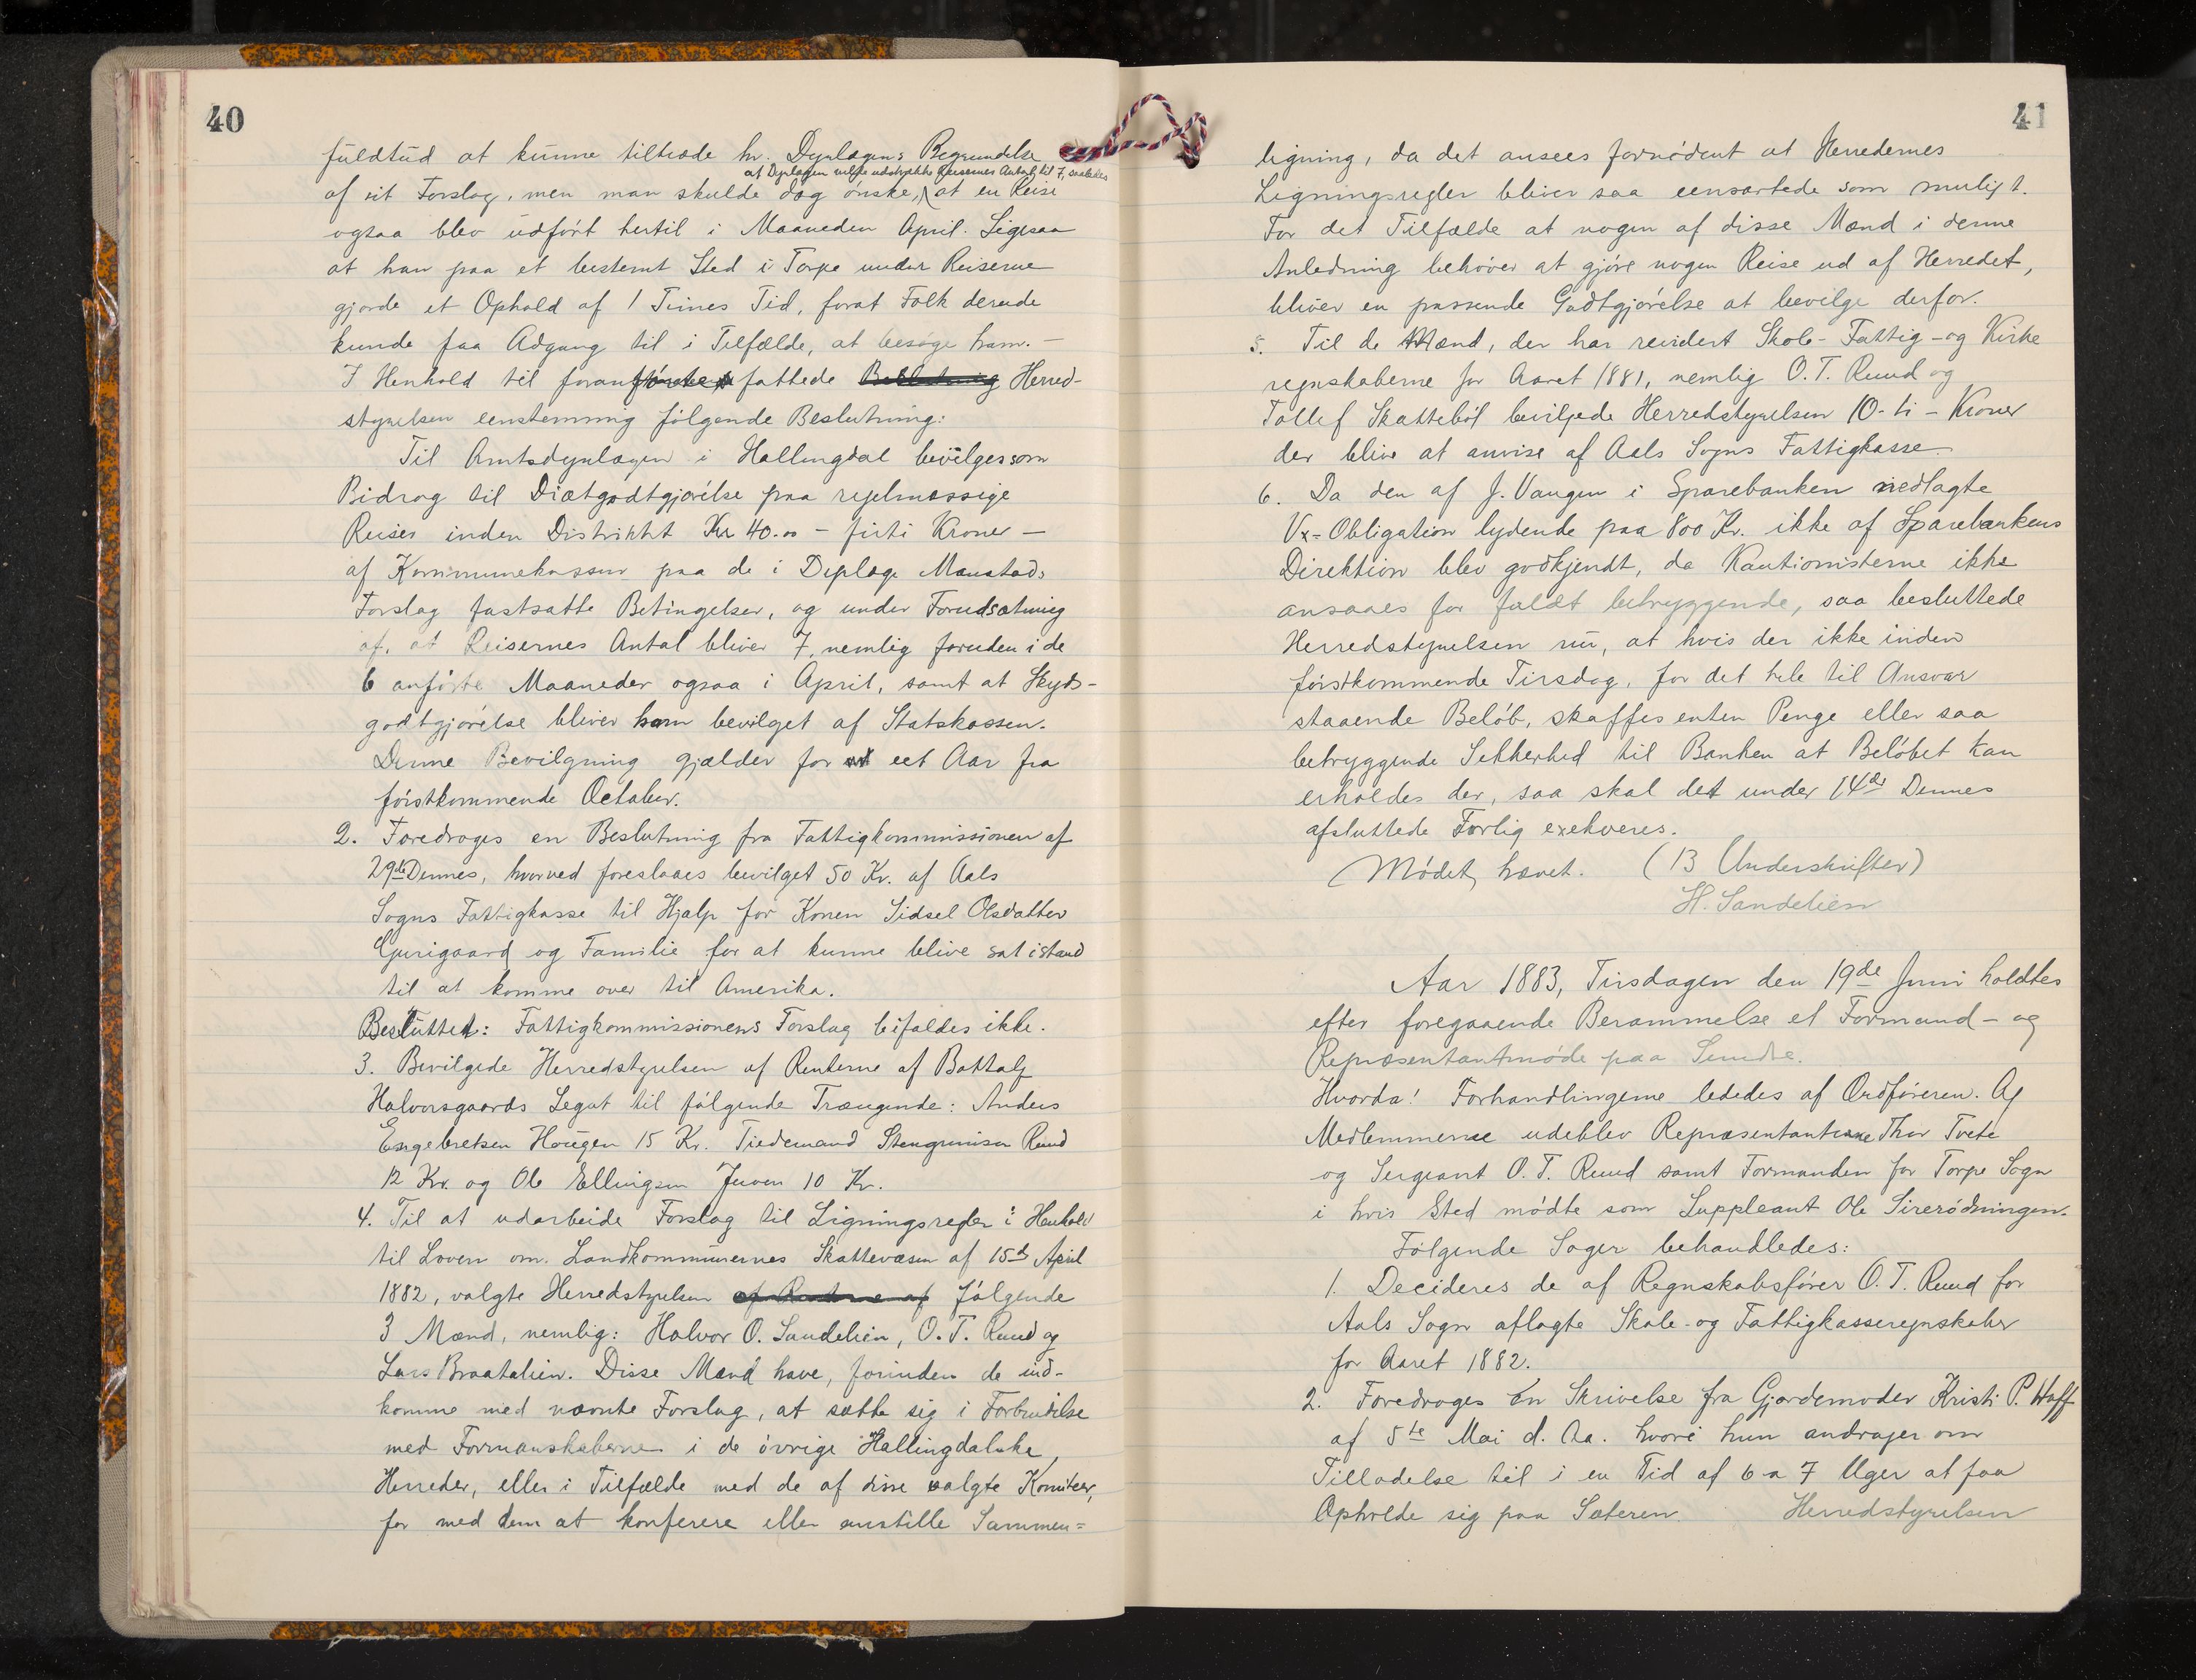 40
fuldtud at kunne tiltræde hr. Dyrlægens Begrundelse
at Dyrlægen vilde udstrække Reisernes Antal til 7, saaledes
af sit Forslag, men man skulde dog ønske, at en Reise
ogsaa blev udført hertil i Maaneden April. Ligesaa
at han paa et bestemt Sted i Torpe under Reiserne
gjorde et Ophold af 1 Times Tid, forat Folk derude
kunde faa Adgang til i Tilfælde, at besøge ham. —
I Henhold til foranførte fattede Beslutning Herred-
styrelsen eenstemmig følgende Beslutning:
Til Amtsdyrlægen i Hallingdal bevilges som
Bidrag til Diætgodtgjørelse paa regelmæssige
Reiser inden Distriktet Kr 40.00 — firti Kroner —
af Kommunekassen paa de i Dyrlæge Manstads
Forslag fastsatte Betingelser, og under Forudsætning
af, at Reisernes Antal bliver 7, nemlig foruden i de
6 anførte Maaneder ogsaa i April, samt at Skyds-
godtgjørelse bliver ham bevilget af Statskassen.
Denne Bevilgning gjælder for et Aar fra
førstkommende October.
2. Foredroges en Beslutning fra Fattigkommissionen af
29de Dennes, hvorved foreslaaes bevilget 50 Kr. af Aals
Sogns Fattigkasse til Hjælp for Konen Sidsel Olsdatter
Gurigaard og Familie for at kunne blive sat istand
til at komme over til Amerika.
Besluttet: Fattigkommissionens Forslag bifaldes ikke.
3. Bevilgede Herredstyrelsen af Renterne af Bottolf
Halvorsgaards Legat til følgende Trængende: Anders
Engebretsen Hougen 15 Kr. Tiedemand Stengrimsen Ruud
12 Kr. og Ole Ellingsen Juven 10 Kr.
4. Til at udarbeide Forslag til Ligningsregler i Henhold
til Loven om Landkommunernes Skattevæsen af 15de April
1882, valgte Herredstyrelsen af Renterne af følgende
3 Mænd, nemlig: Halvor O. Sundelien, O. T. Ruud og
Lars Braatalien. Disse Mænd have, forinden de ind-
komme med nævnte Forslag, at sætte sig i Forbindelse
med Formanskaberne i de øvrige Hallingdalske
Herreder, eller i Tilfælde med de af disse valgte Komiteer,
for med dem at konferere eller anstille Sammen=
41
ligning, da det ansees fornødent at Herredernes
Ligningsregler bliver saa eensartede som muligt.
For det Tilfælde at nogen af disse Mænd i denne
Anledning behøver at gjøre nogen Reise ud af Herredet,
bliver en passende Godtgjørelse at bevilge derfor.
5. Til de Mænd, der har revidert Skole- Fattig- og Kirke
regnskaberne for Aaret 1881, nemlig O. T. Ruud og
Tollef Skattebøl bevilgede Herredstyrelsen 10 - ti - Kroner
der blive at anvise af Aals Sogns Fattigkasse.
6. Da den af J. Vangen i Sparebanken nedlagte
Vx-Obligation lydende paa 800 Kr. ikke af Sparebankens
Direktion blev godkjendt, da Kautionisterne ikke
ansaaes for fuldt betryggende, saa besluttede
Herredstyrelsen nu, at hvis der ikke inden
førstkommende Tirsdag, for det hele til Ansvar
staaende Beløb, skaffes enten Penge eller saa
betryggende Sikkerhed til Banken at Beløbet kan
erholdes der, saa skal det under 14de Dennes
afsluttede Forlig exekveres.
Mødet hævet. (13 Underskrifter)
H. Sandelien
Aar 1883, Tirsdagen den 19de Juni holdtes
efter foregaaende Berammelse et Formand- og
Repræsentantmøde paa Sundre.
Hvorda! Forhandlingerne lededes af Ordføreren. Af
Medlemmerne udeblev Repræsentanterne Thor Tveto
og Sergeant O. T. Ruud samt Formanden for Torpe Sogn
i hvis Sted mødte som Suppleant Ole Sirerødningen.
Følgende Sager behandledes:
1. Decideres de af Regnskabsfører O. T. Ruud for
Aals Sogn aflagte Skole- og Fattigkasseregnskaber
for Aaret 1882.
2. Foredroges en Skrivelse fra Gjordemoder Kristi P. Hoff
af 5te Mai d. Aa. hvori hun andrager om
Tilladelse til i en Tid af 6 a 7 Uger at faa
Opholde sig paa Sæteren. Herredstyrelsen